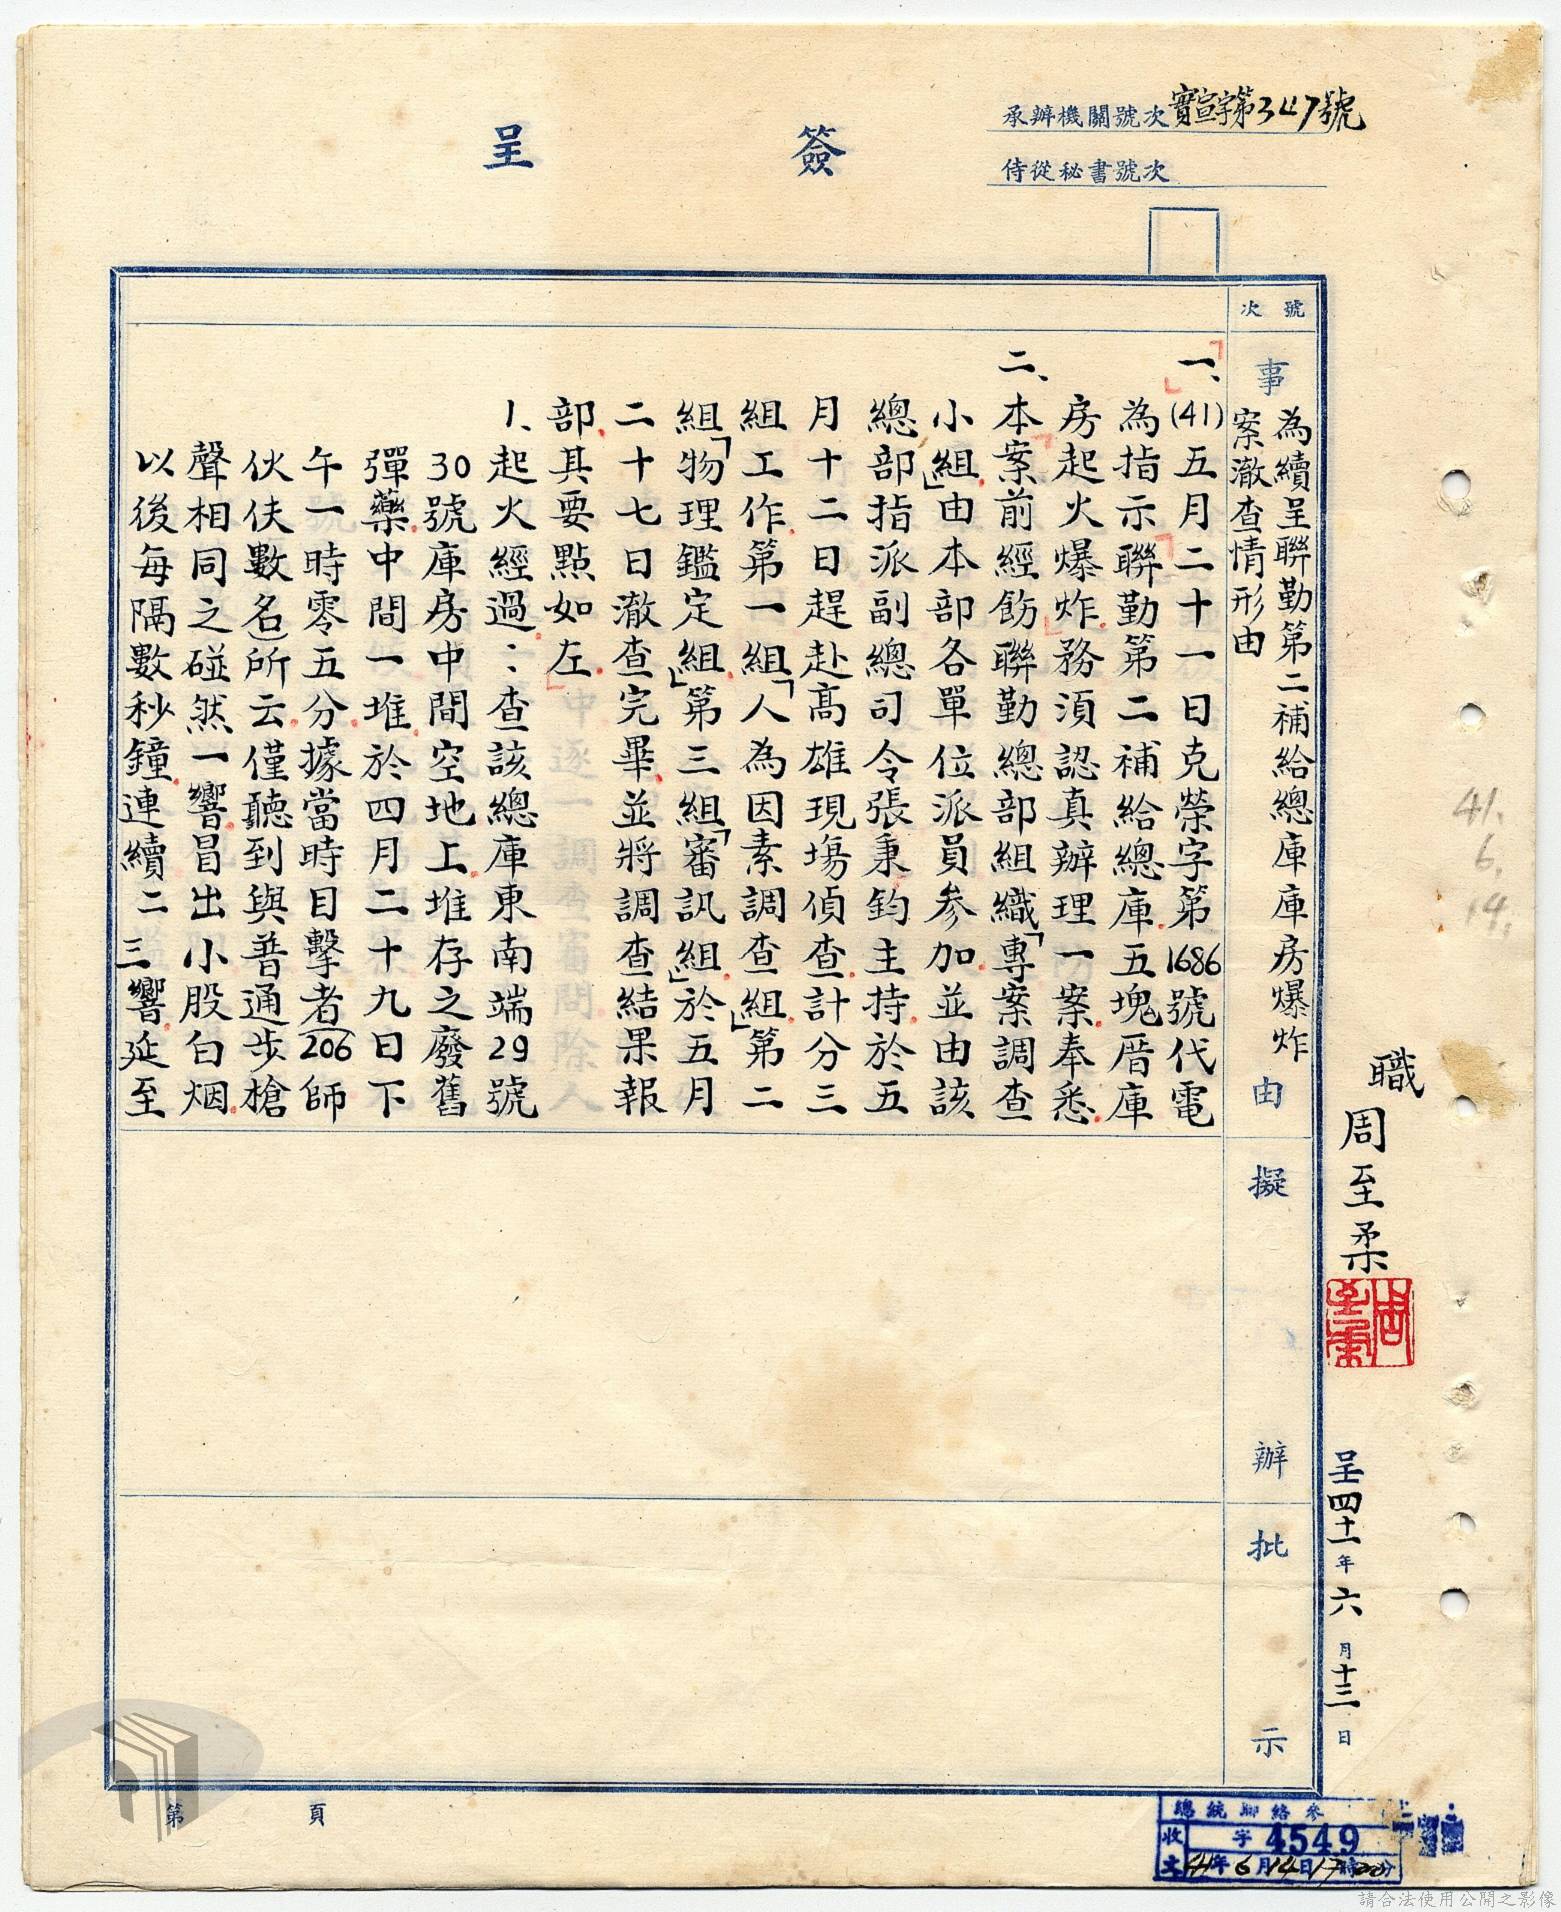 簽呈
承辦機關號次 實宣字第347號
侍從秘書號次
職 周至柔
呈 四十一年 六月 十三日
41.
6.
14.
號次
事由
擬辦
批示
為續呈聯勤第二補給總庫庫房爆炸
案澈查情形由
一、(41)五月二十一日克榮字第1686號代電
為指示聯勤第二補給總庫五塊厝庫
房起火爆炸務須認真辦理一案奉悉
二、本案前經飭聯勤總部組織「專案調查
小組」由本部各單位派員參加並由該
總部指派副總司令張秉鈞主持於五
月十二日趕赴高雄現場偵查計分三
組工作第一組「人為因素調查組」第二
組「物理鑑定組」第三組「審訊組」於五月
二十七日澈查完畢並將調查結果報
部其要點如左
1、起火經過：查該總庫東南端29號
30號庫房中間空地上堆存之廢舊
彈藥中間一堆於四月二十九日下
午一時零五分據當時目擊者(206師
伙伕數名)所云僅聽到與普通步槍
聲相同之碰然一響冒出小股白烟
以後每隔數秒鐘連續二三響延至
第 頁
收文 字 4549
41年6月14日17時00分
請合法使用公開之影像